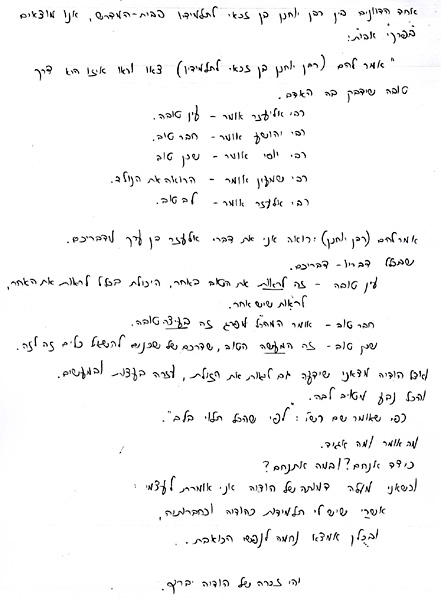 אחד הדיונים בין רבן יוחנן בן זכאי לתלמידיו בבית-המדרש, אנו מוצאים
בפרקי אבות:
"אמר להם (רבן יוחנן בן זכאי לתלמידיו) צאו וראו איזו היא דרך
טובה שידבק בה האדם.
רבי אליעזר אומר - עין טובה.
רבי יהושע אומר - חבר טוב.
רבי יוסי אומר - שכן טוב
רבי שמעון אומר - הרואה את הנולד.
רבי אלעזר אומר - לב טוב.
אמר להם (רבן יוחנן): רואה אני את דברי אלעזר בן ערך מדבריכם.
שבכלל דבריו - דבריכם.
עין טובה - זה לראות את הטוב באחר, היכולת בכלל לראות את האחר,
לראות שיש אחר.
חבר טוב - אומר המהר"ל מפרג זה בעיצה טובה.
שכן טוב - זה המעשה הטוב, שדרכם של שכנים להשאיל כלים זה לזה.
ואצל הודיה מצאנו שידעה גם לראות את הזולת, עזרה בעצות ובמעשים.
והכל נבע מטוב לבה.
כפי שאומר שם רש"י: "לפי שהכל תלוי בלב".
מה אומר ומה אגיד.
כיצד אנחם? ובמה אתנחם?
וכשאני מעלה דמותה של הודיה אני אומרת לעצמי:
אשרי שיש לי תלמידות כהודיה וכחברותיה,
ובכולן אמצא נחמה לנפשי הכואבת..
יהי זכרה של הודיה ברוך.